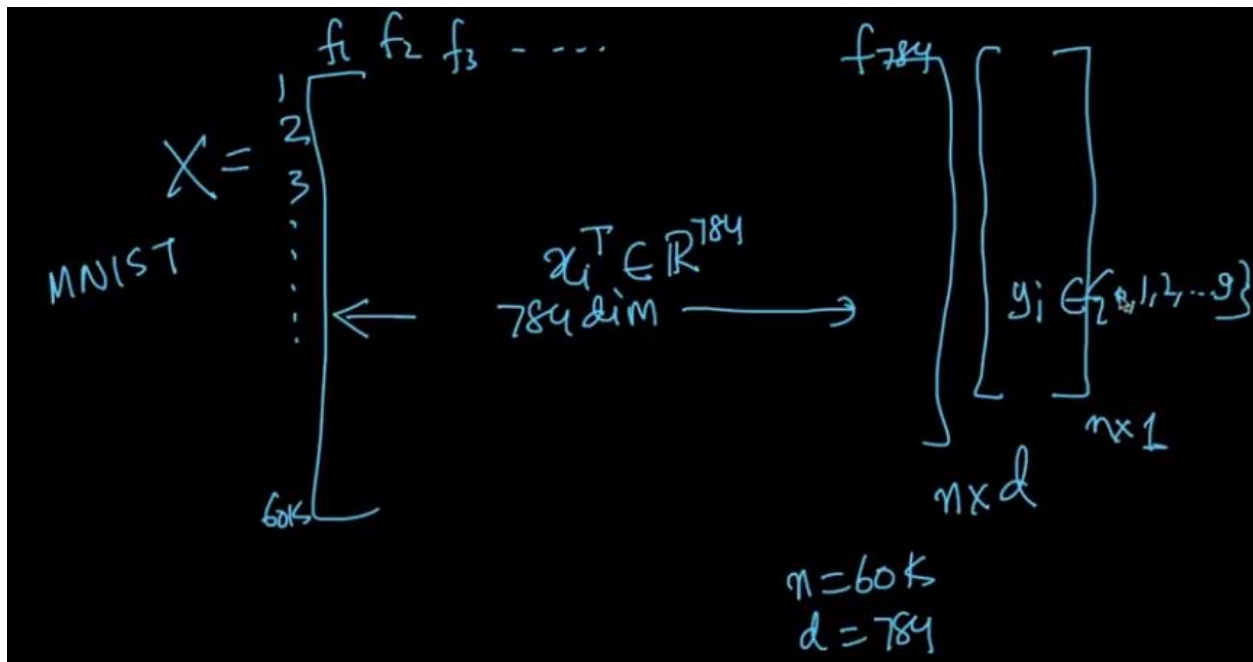 f₁ f₂ f₃ - - ... f₇₈₄
1
2
X =
3
MNIST
xᵢᵀ ∈ ℝ⁷⁸⁴
784 dim
yᵢ ∈ {0,1,2,...9}
n×1
60K
n×d
n=60K
d=784